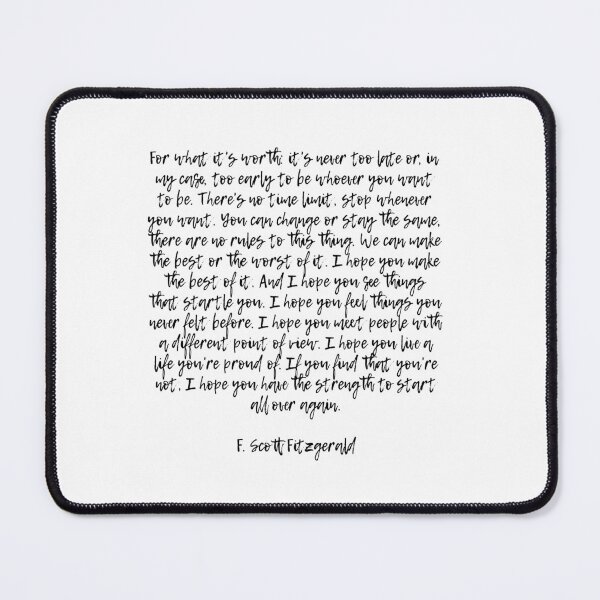 For what it's worth: it's never too late or, in
my case, too early to be whoever you want
to be. There's no time limit, stop whenever
you want. You can change or stay the same,
there are no rules to this thing. We can make
the best or the worst of it. I hope you make
the best of it. And I hope you see things
that startle you. I hope you feel things you
never felt before. I hope you meet people with
a different point of view. I hope you live a
life you're proud of. If you find that you're
not, I hope you have the strength to start
all over again.
F. Scott Fitzgerald